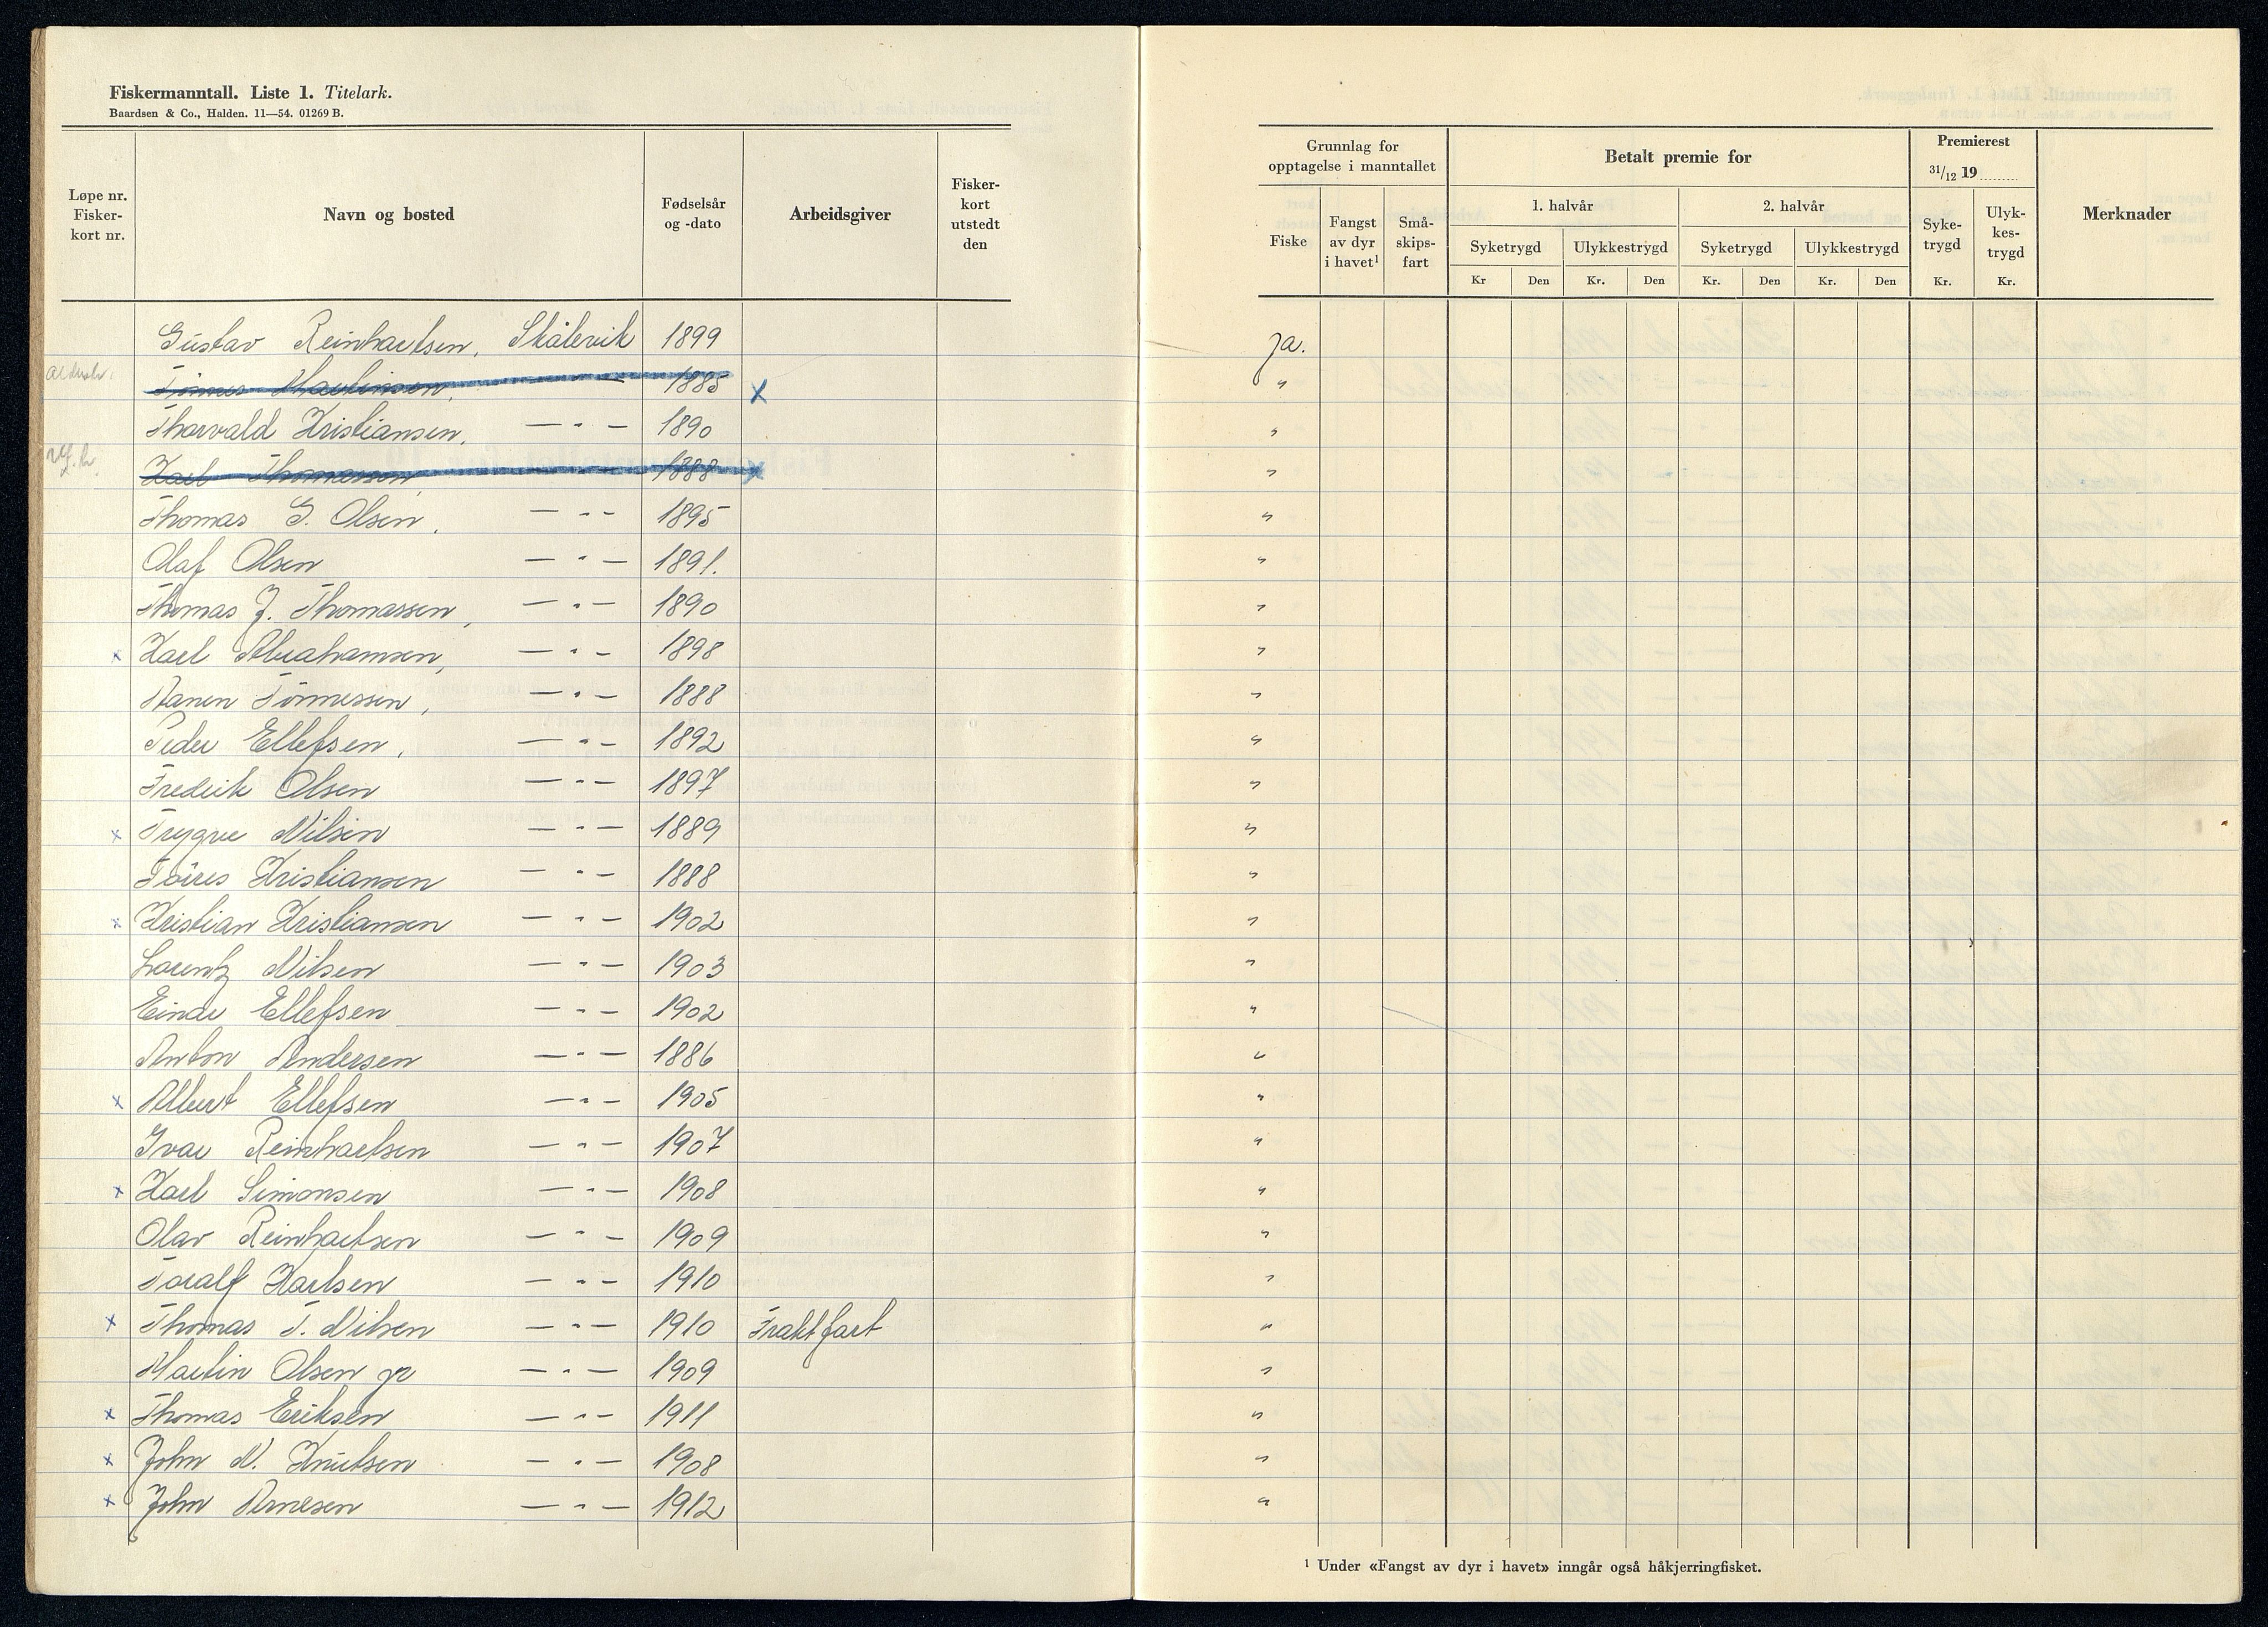 Fiskermanntall. Liste 1. Titelark.
Baardsen & Co., Halden. 11—54. 01269 B.
Løpe nr. Fisker- kort nr.
Navn og bosted
Fødselsår og -dato
Arbeidsgiver
Fisker- kort utstedt den
Grunnlag for opptagelse i manntallet
Fiske
Fangst av dyr i havet¹
Små- skips- fart
Betalt premie for
1. halvår
2. halvår
Syketrygd Ulykkestrygd Syketrygd Ulykkestrygd
Kr Den Kr. Den Kr. Den Kr. Den
Premierest
31/12 19........
Syke- trygd Kr.
Ulyk- kes- trygd Kr.
Merknader
Gustav Reinhartsen, Skålevik 1899 Ja.
Tönnes Martinsen, — 1885 x "
Thorvald Kristiansen, — " — 1890 "
Karl Thomassen, 1888 x "
Thomas G. Olsen, — " — 1895 "
Olaf Olsen — " — 1891. "
Thomas J. Thomassen, — " — 1890 "
x Karl Abrahamsen, — " — 1898 "
Aanen Tönnessen, — " — 1888 "
Peder Ellefsen, — " — 1892 "
Fredrik Olsen — " — 1897 "
x Trygve Nilsen — " — 1889 "
Töres Kristiansen — " — 1888 "
x Kristian Kristiansen — " — 1902 "
Lorentz Nilsen — " — 1903 "
Einar Ellefsen — " — 1902 "
Anton Andersen — " — 1886 "
x Albert Ellefsen — " — 1905 "
Ivar Reinhartsen — " — 1907 "
x Karl Simonsen — " — 1908 "
Olav Reinhartsen — " — 1909 "
Toralf Karlsen — " — 1910 "
x Thomas T. Nilsen — " — 1910 Fraktfart "
Martin Olsen jr — " — 1909 "
x Thomas Eriksen — " — 1911 "
x John N. Knutsen — " — 1908 "
x John Arnesen — " — 1912 "
¹ Under «Fangst av dyr i havet» inngår også håkjerringfisket.